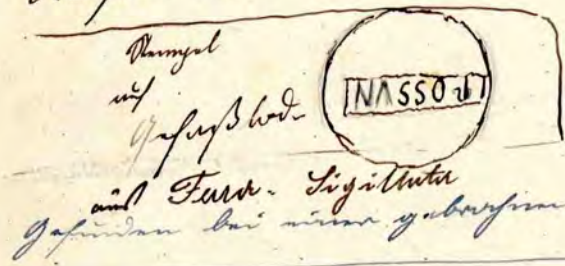 Stempel
auf
Gefäßbod-
NASSO
aus Terra-Sigillata
Gefunden bei einer gebrochenen